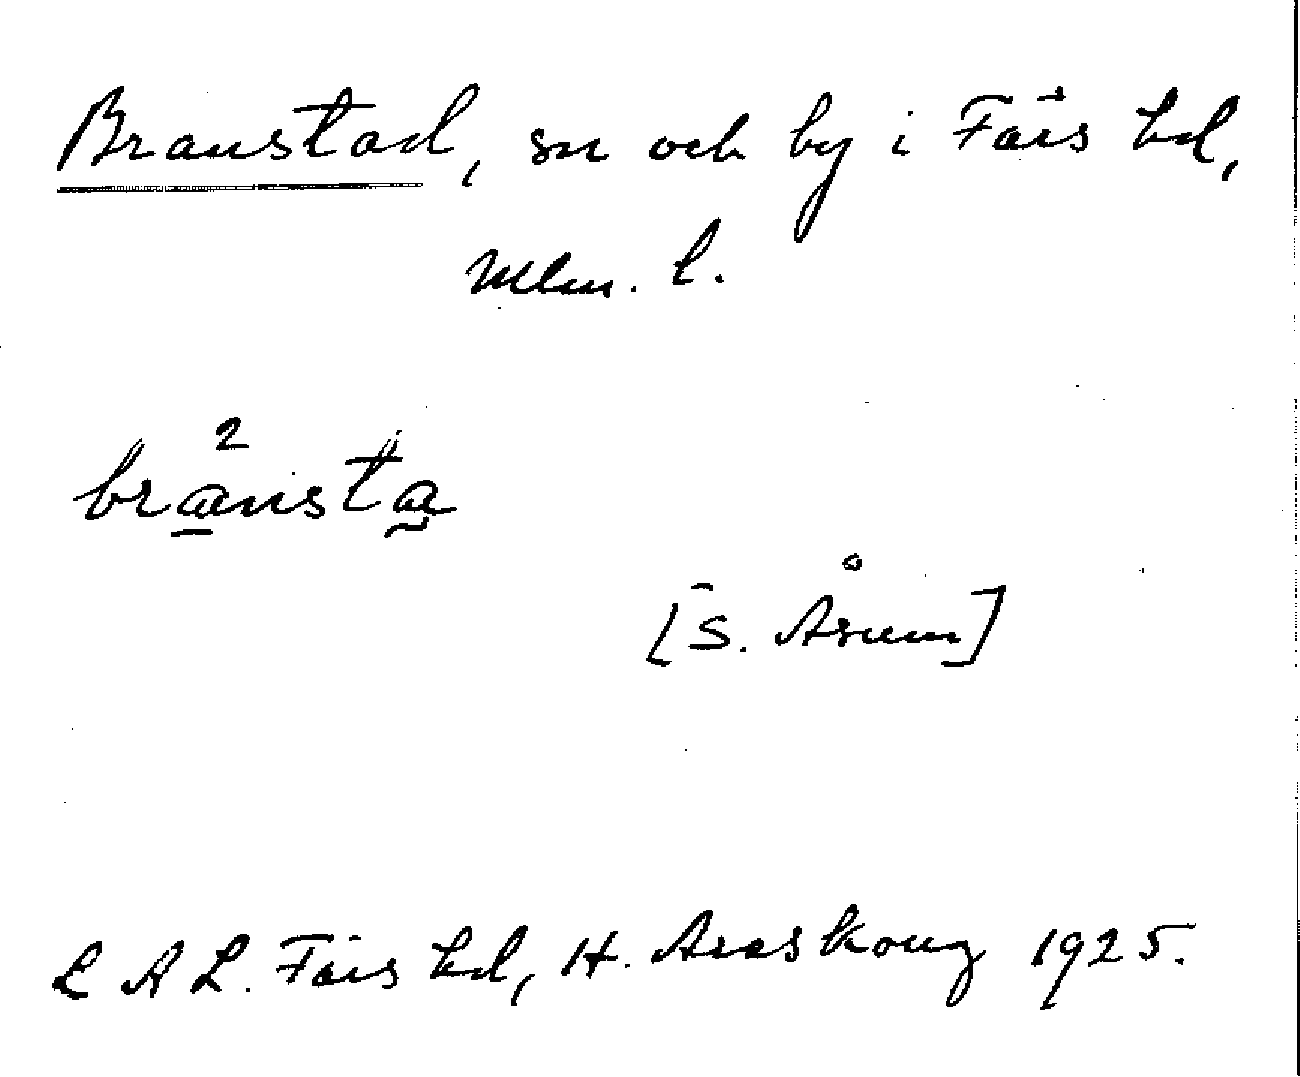 Branstad, sn och by i Färs hd,
Mlm. l.
bra²nsta
[S. Åsum]
L A L. Färs hd, H. Areskoug 1925.